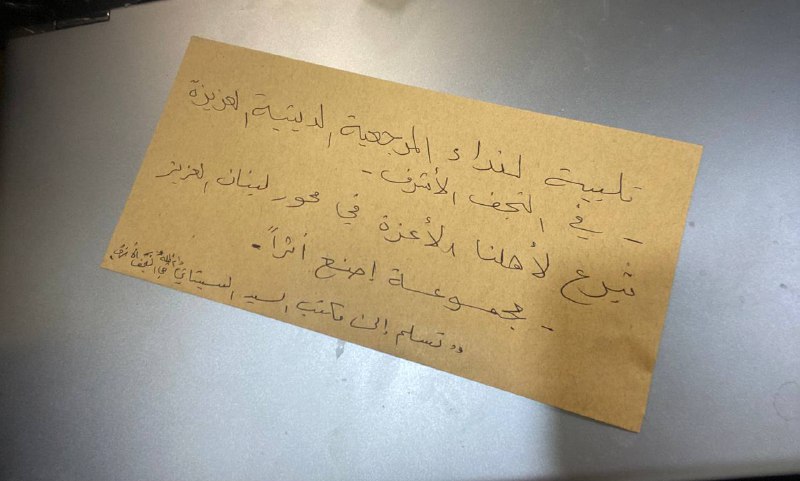 تلبية لنداء المرجعية الدينية العزيزة
- في النجف الأشرف -
تبرع لأهلنا الأعزة في محور لبنان العزيز
- مجموعة إصنع أثراً -
"تسلم إلى مكتب السيد السيستاني في النجف الأشرف"